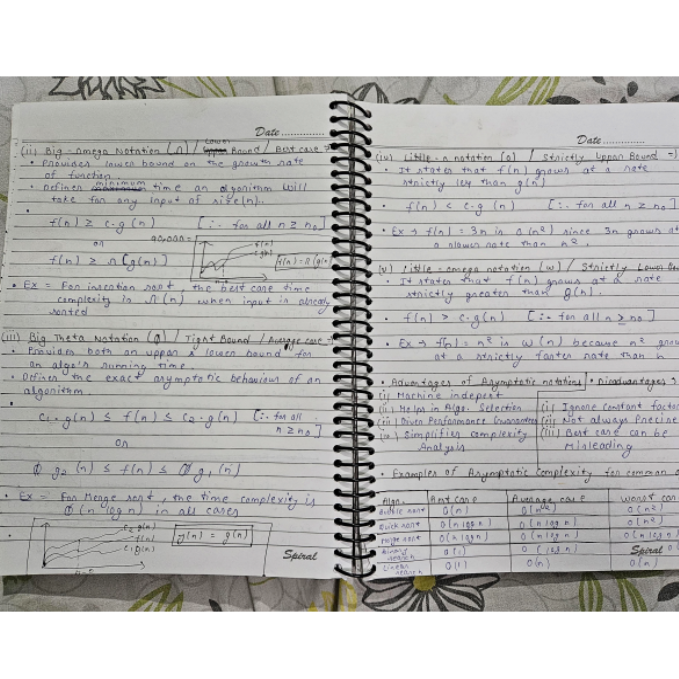 Date..............
(ii) Big-Omega Notation (Ω) / Lower Bound / Best case =>
• Provides lower bound on the growth rate
of function
• Defines minimum time an algorithm will
take for any input of size(n).
•
f(n) ≥ c·g(n) [∵ for all n ≥ n₀]
or
f(n) ≥ Ω(g(n))
f(n)
c g(n)
f(n) = Ω(g(n))
• Ex = For insertion sort, the best case time
complexity is Ω(n) when input is already
sorted
(iii) Big Theta Notation (θ) / Tight Bound / Average case =>
• Provides both an upper & lower bound for
an algo's running time.
• Defines the exact asymptotic behaviour of an
algorithm.
•
c₁·g(n) ≤ f(n) ≤ c₂·g(n) [∵ for all
n ≥ n₀]
or
θ g₂(n) ≤ f(n) ≤ θ g₁(n)
• Ex = For Merge sort, the time complexity is
θ(n log n) in all cases
c₂ g(n)
f(n)
c₁g(n)
= g(n)
Spiral
Date..............
(iv) Little-o notation (o) / Strictly Upper Bound =>
• It states that f(n) grows at a rate
strictly less than g(n)
• f(n) < c·g(n) [∵ for all n ≥ n₀]
• Ex → f(n) = 3n is o(n²) since 3n grows at
a slower rate than n².
(v) Little-omega notation (ω) / Strictly Lower
• It states that f(n) grows at a rate
strictly greater than g(n).
• f(n) > c·g(n) [∵ for all n ≥ n₀]
• Ex → f(n) = n² is ω(n) because n²
at a strictly faster rate than n
• Advantages of Asymptotic notations • Disadvantages
(i) Machine indepest (i) Ignore constant
(ii) Helps in Algo. Selection (ii) Not always Precise
(iii) Gives Performance Guarantees (iii) Best case can be
(iv) Simplifies complexity Misleading
Analysis
• Examples of Asymptotic Complexity for common
Algo. Best case Average case Worst
Bubble sort O(n) O(n²) O(n²)
Quick sort O(n log n) O(n log n) O(n²)
Merge sort O(n log n) O(n log n) O(n log n)
Binary search O(1) O(log n) O
Spiral
Linear search O(1) O(n) O(n)